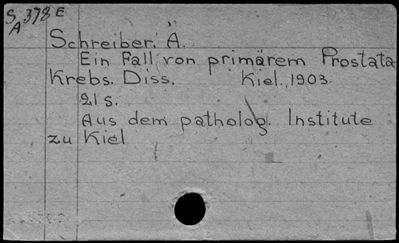 S 378 E
A
Schreiber. Ä.
Ein Fall von primärem Prostata
Krebs. Diss. Kiel, 1903
21 S.
Aus dem patholog. Institute
zu Kiel